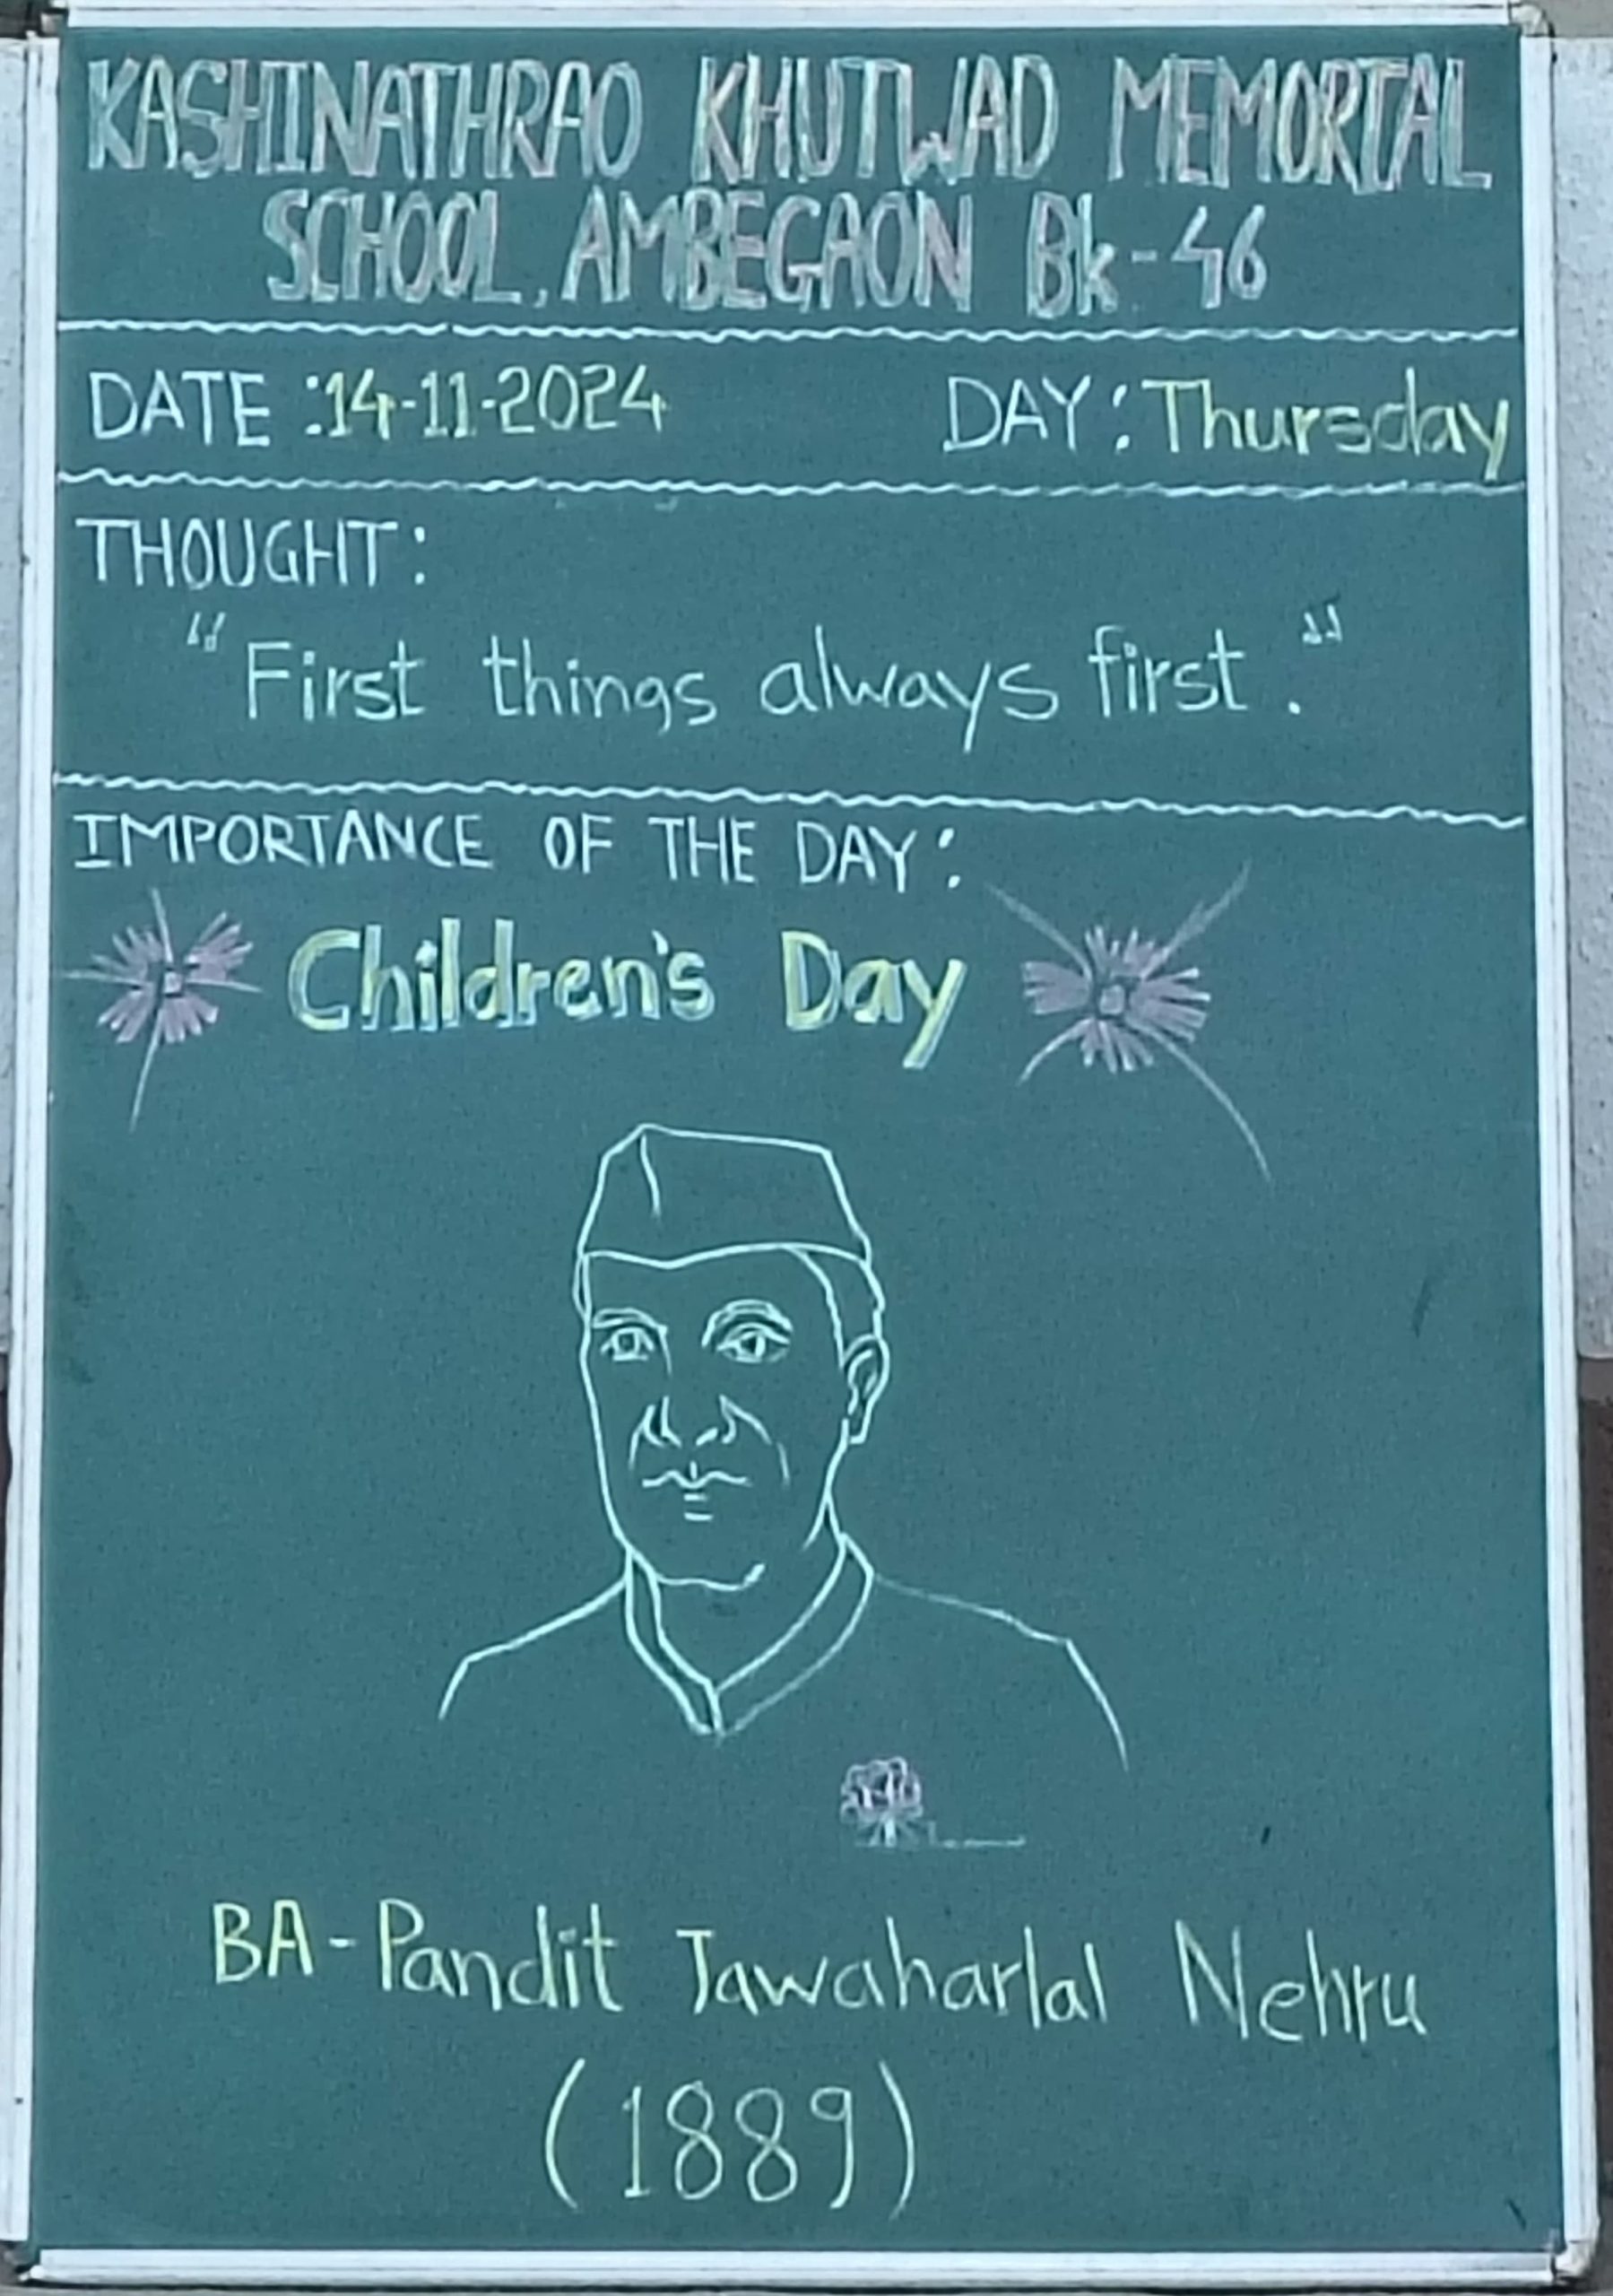 KASHINATHRAO KHUTWAD MEMORIAL
SCHOOL, AMBEGAON Bk-46
DATE :14-11-2024 DAY: Thursday
THOUGHT:
"First things always first."
IMPORTANCE OF THE DAY:
Children's Day
BA-Pandit Jawaharlal Nehru
(1889)